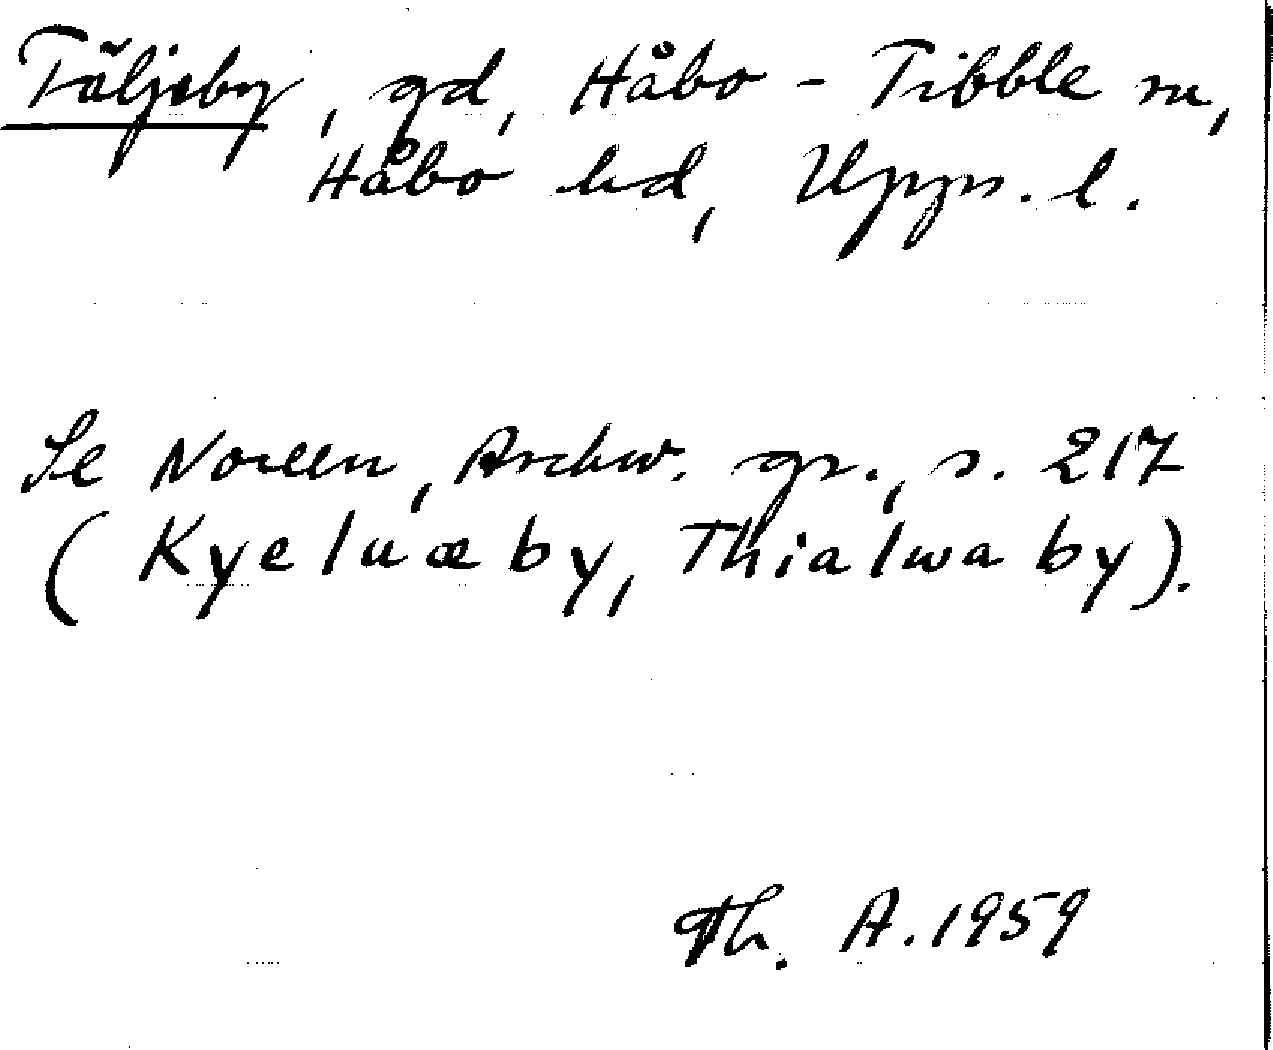 Täljeby, gd, Håbo-Tibble sn,
Håbo hd, Upps. l.
Se Noreen, Aschw. gr., s. 217
(Kyeluæby, Thialwaby).
Th. A. 1959